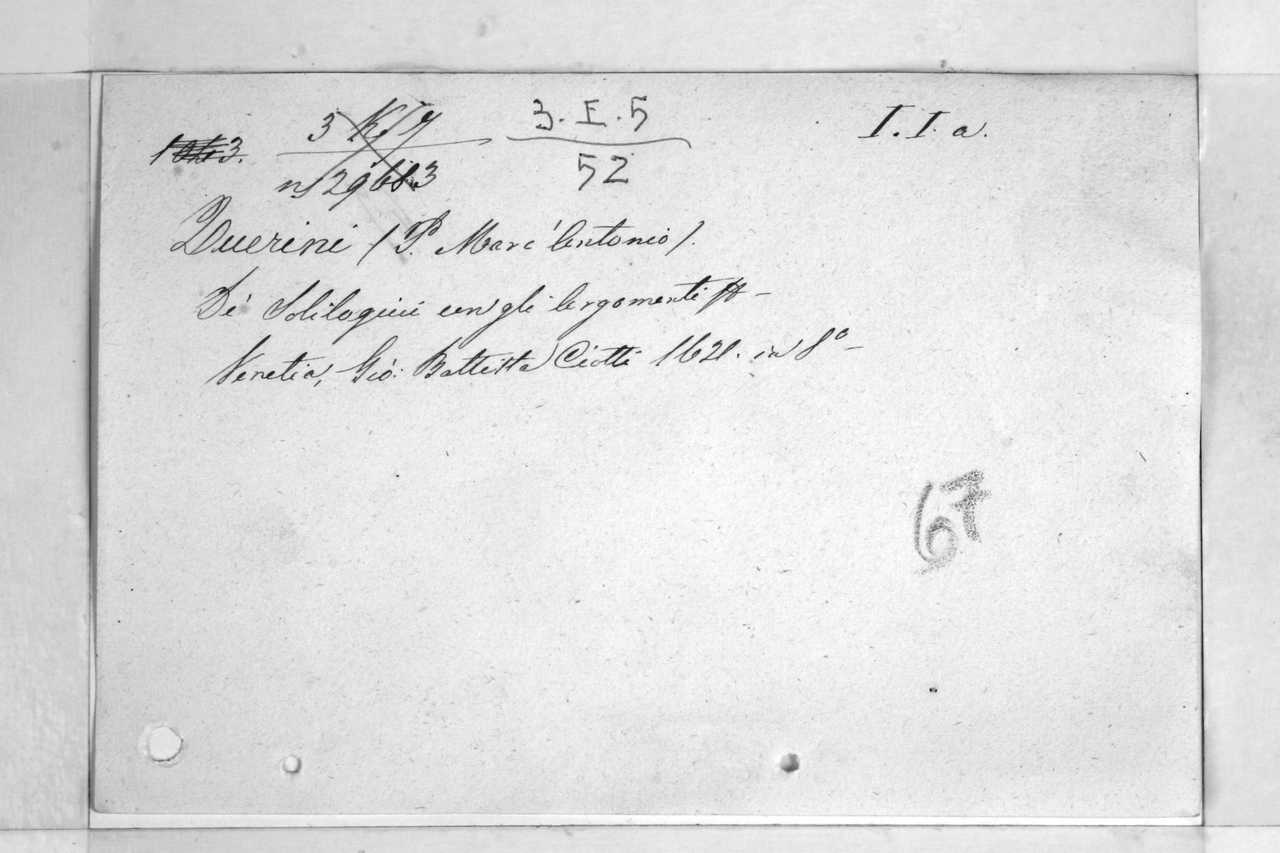 3 K 7 3. I. 5 I. I. a.
n 29683 52
Querini (P. Marc'Antonio).
De' Soliloquii con gli Argomenti
Venetia, Gio: Battista Ciotti 1621. in 8°
67